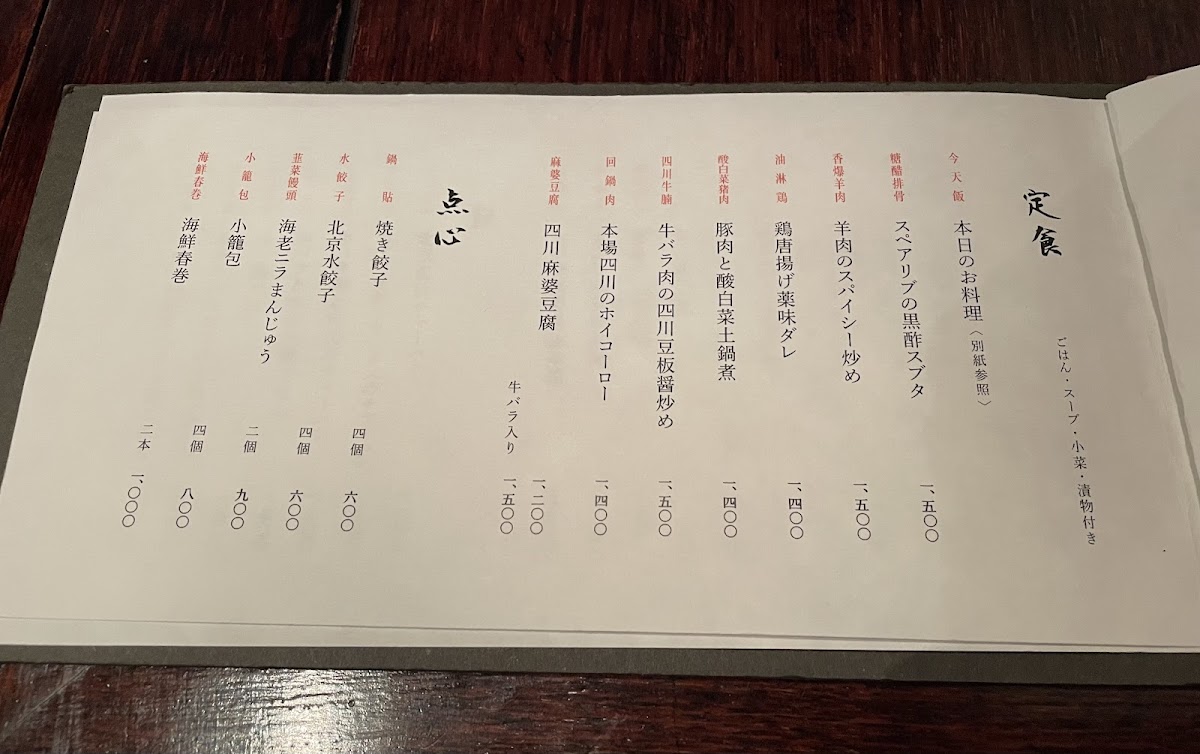 定食
ごはん・スープ・小菜・漬物付き
今天飯 本日のお料理〈別紙参照〉
糖醋排骨 スペアリブの黒酢スブタ 一、五〇〇
香爆羊肉 羊肉のスパイシー炒め 一、五〇〇
油淋鶏 鶏唐揚げ薬味ダレ 一、四〇〇
酸白菜猪肉 豚肉と酸白菜土鍋煮 一、四〇〇
四川牛腩 牛バラ肉の四川豆板醤炒め 一、五〇〇
回鍋肉 本場四川のホイコーロー 一、四〇〇
麻婆豆腐 四川麻婆豆腐 一、二〇〇
牛バラ入り 一、五〇〇
点心
鍋貼 焼き餃子 四個 六〇〇
水餃子 北京水餃子 四個 六〇〇
韮菜饅頭 海老ニラまんじゅう 二個 九〇〇
小籠包 小籠包 四個 八〇〇
海鮮春巻 海鮮春巻 二本 一、〇〇〇